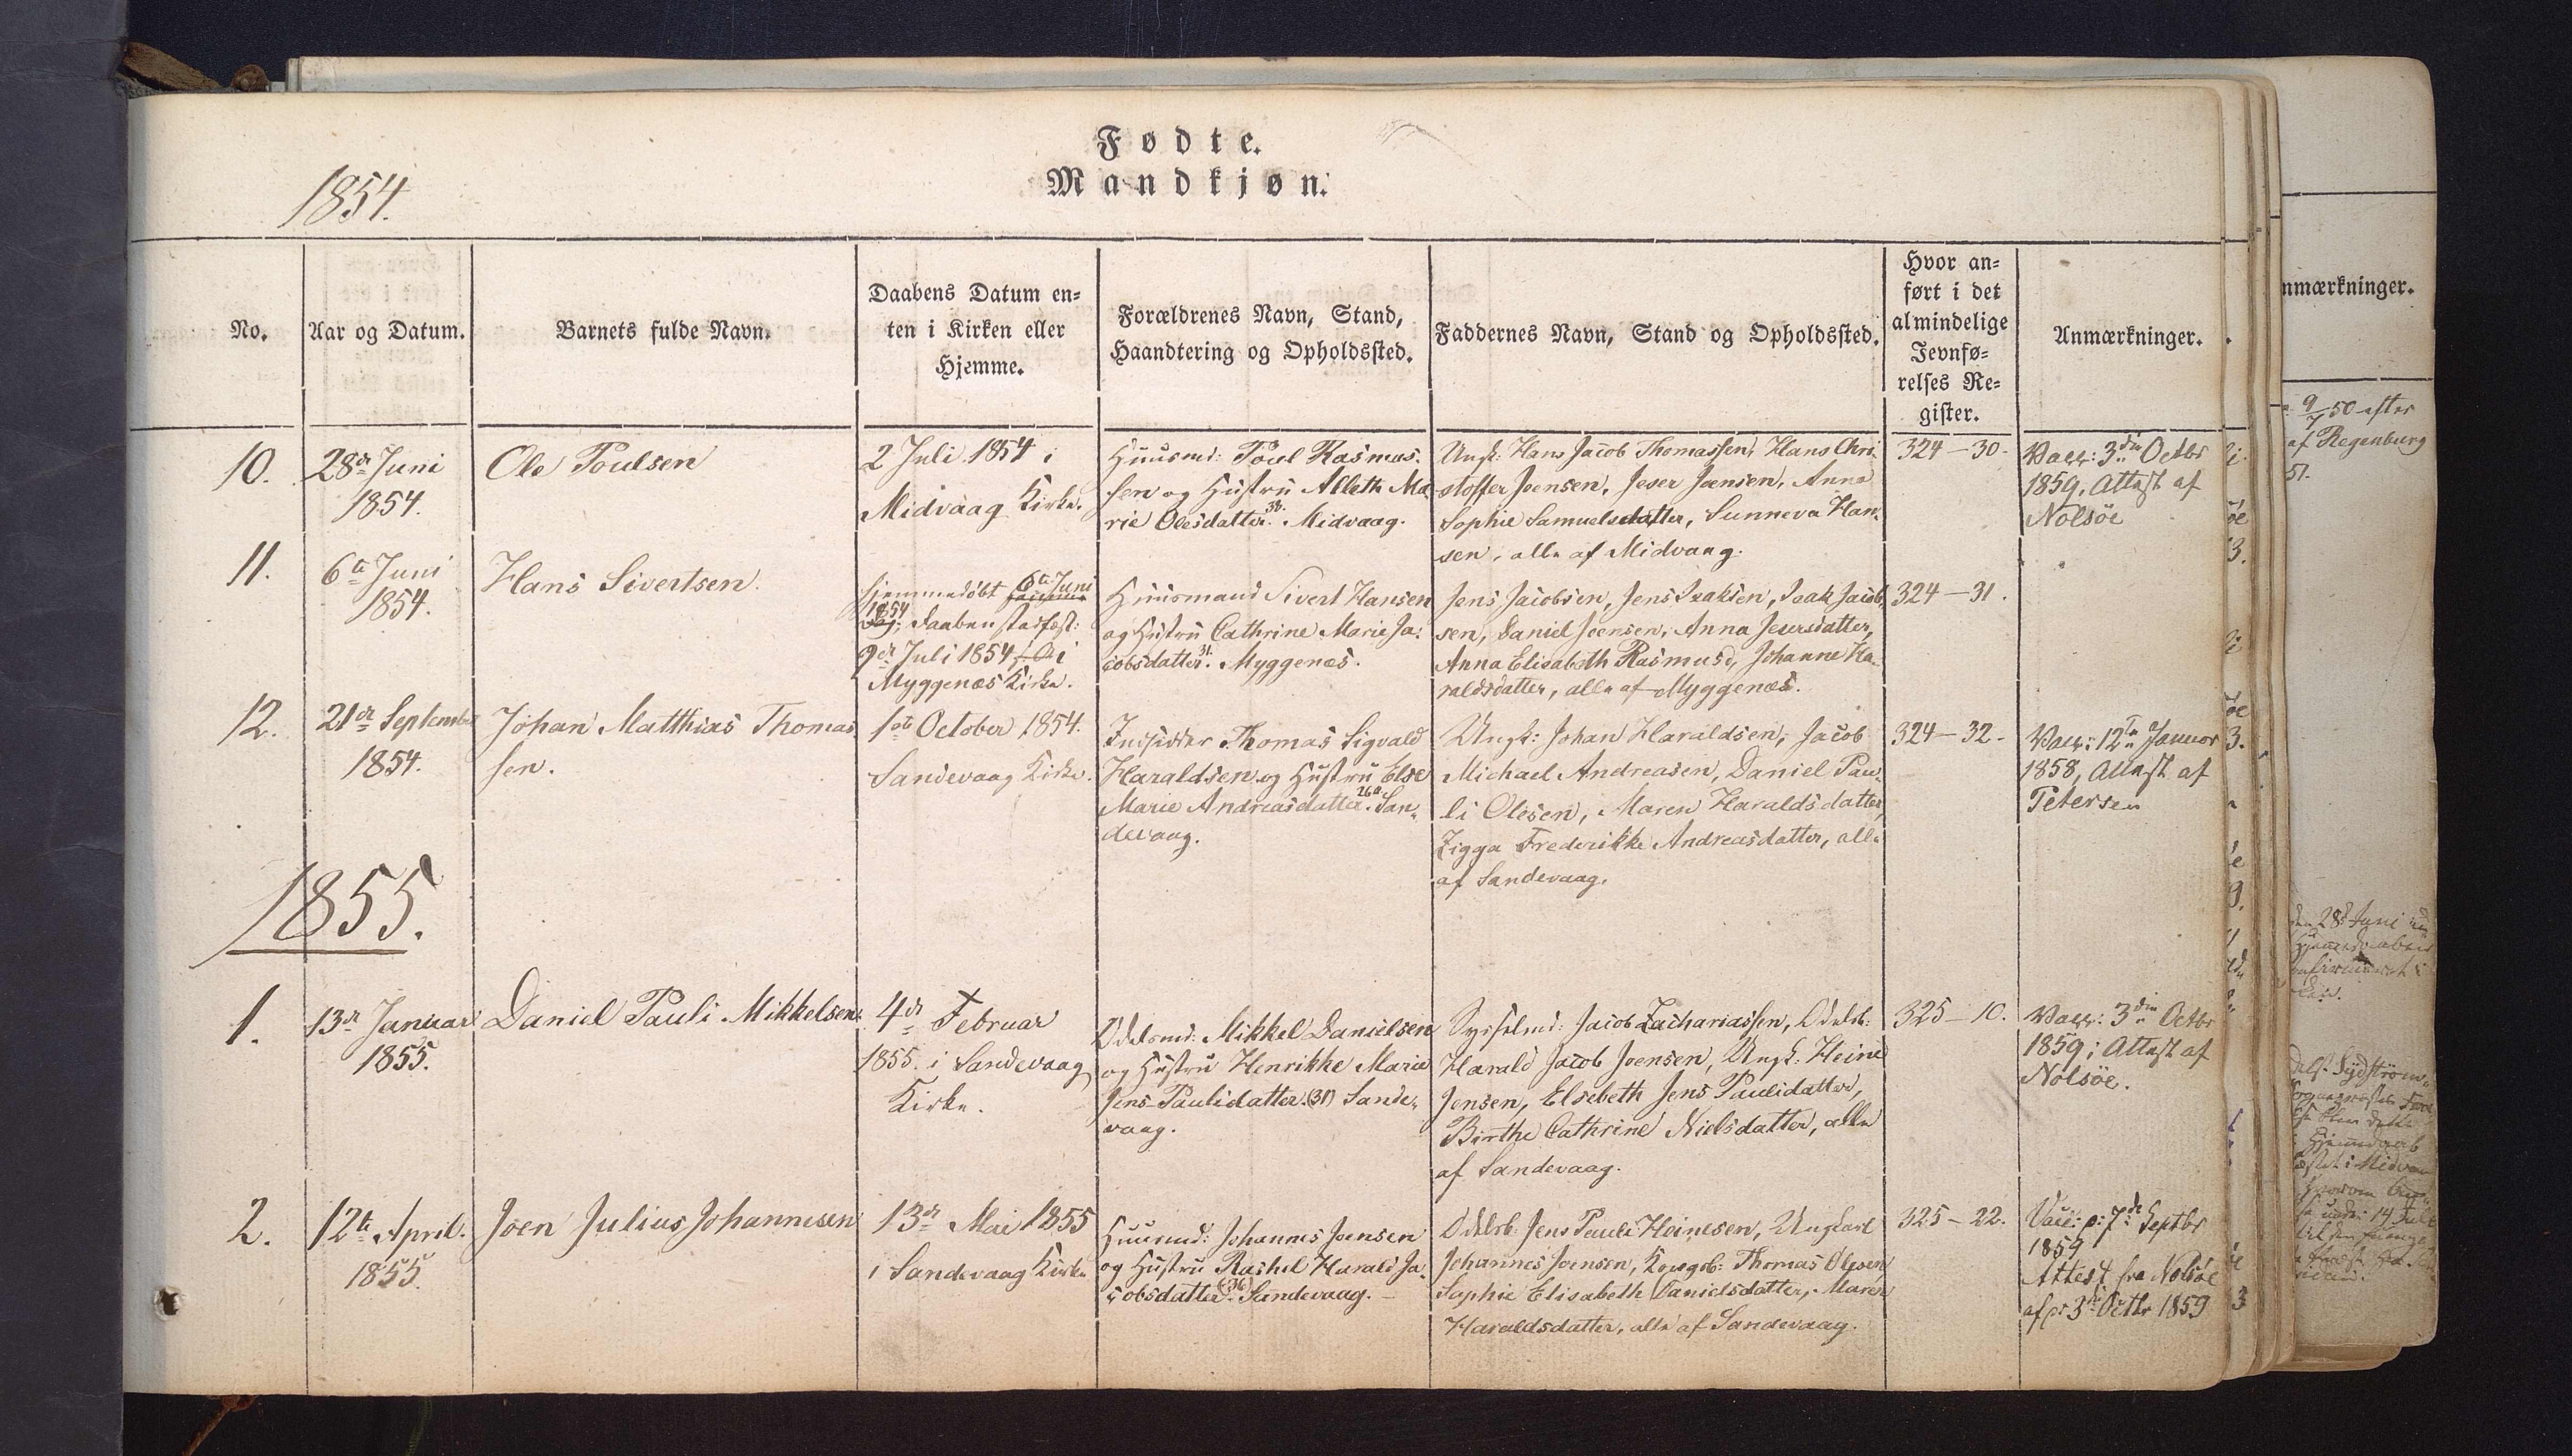 Fødte.
Mandkjøn.
1854.
No.
Aar og Datum.
Barnets fulde Navn.
Daabens Datum en=
ten i Kirken eller
Hjemme.
Forældrenes Navn, Stand,
Haandtering og Opholdssted.
Faddernes Navn, Stand og Opholdssted.
Hvor an=
ført i det
almindelige
Jevnfø=
relses Re=
gister.
Anmærkninger.
10.
28de Juni
1854.
Ole Poulsen
2 Juli 1854 i
Midvaag Kirke.
Huusmd: Poul Rasmus-
sen og Hustru Alleth Ma-
rie Olesdatter. 33. Midvaag.
Ungk: Hans Jacob Thomassen, Hans Chri-
stoffer Joensen, Jeser Joensen, Anna
Sophie Samuelsdatter, Sunneva Han-
sen, alle af Midvaag.
324-30.
Vacc: 3die Octbr
1859, Attest af
Nolsöe
11.
6te Juni
1854.
Hans Sivertsen.
Hjemmedöbt 6te Juni
1854, Daaben stadfæst:
9de Juli 1854 i
Myggenæs Kirke.
Huusmand Sivert Hansen
og Hustru Cathrine Marie Ja-
cobsdatter. 31. Myggenæs.
Jens Jacobsen, Jens Isaksen, Isak Jacob-
sen, Daniel Joensen, Anna Jesersdatter,
Anna Elisabeth Rasmusd, Johanne Ha-
raldsdatter, alle af Myggenæs.
324-31.
12.
21de September
1854.
Johan Matthias Thomas-
sen.
1ste October 1854.
Sandevaag Kirke.
Indsidder Thomas Sigvald
Haraldsen og Hustru Else
Marie Andreasdatter. 26 a. San-
devaag.
Ungk: Johan Haraldsen, Jacob
Michael Andreasen, Daniel Pau-
li Olesen, Maren Haraldsdatter,
Zigga Frederikke Andreasdatter, alle
af Sandevaag.
324-32.
Vacc: 12te Januar
1858, Attest af
Petersen
1855.
1.
13de Januar
1855.
Daniel Pauli Mikkelsen.
4de Februar
1855. i Sandevaag
Kirke.
Odelsmd: Mikkel Danielsen
og Hustru Henrikke Marie
Jens-Paulidatter. (31) Sande-
vaag.
Sysselmd: Jacob Zachariassen, Odelsb:
Harald Jacob Joensen, Ungk: Heine
Jensen, Elsebeth Jens Paulidatter,
Birthe Cathrine Nielsdatter, alle
af Sandevaag.
325-10.
Vacc: 3die Octbr
1859; Attest af
Nolsöe.
2.
12te April.
1855.
Joen Julius Johannesen
13de Mai 1855
i Sandevaag Kirke
Huusmd: Johannes Joensen
og Hustru Rachel Harald Ja-
cobsdatter (36). Sandevaag.
Odelsb: Jens Pauli Heinesen, Ungkarl
Johannes Joensen, Kongsb: Thomas Olesen
Sophie Elisabeth Danielsdatter, Maren
Haraldsdatter, alle af Sandevaag.
325-22.
Vacc: p: 7de Septbr
1859
Attest fra Nolsöe
af p: 3die Octbr 1859
nmærkninger.
9/7 50 efter
af Regenburg
51.